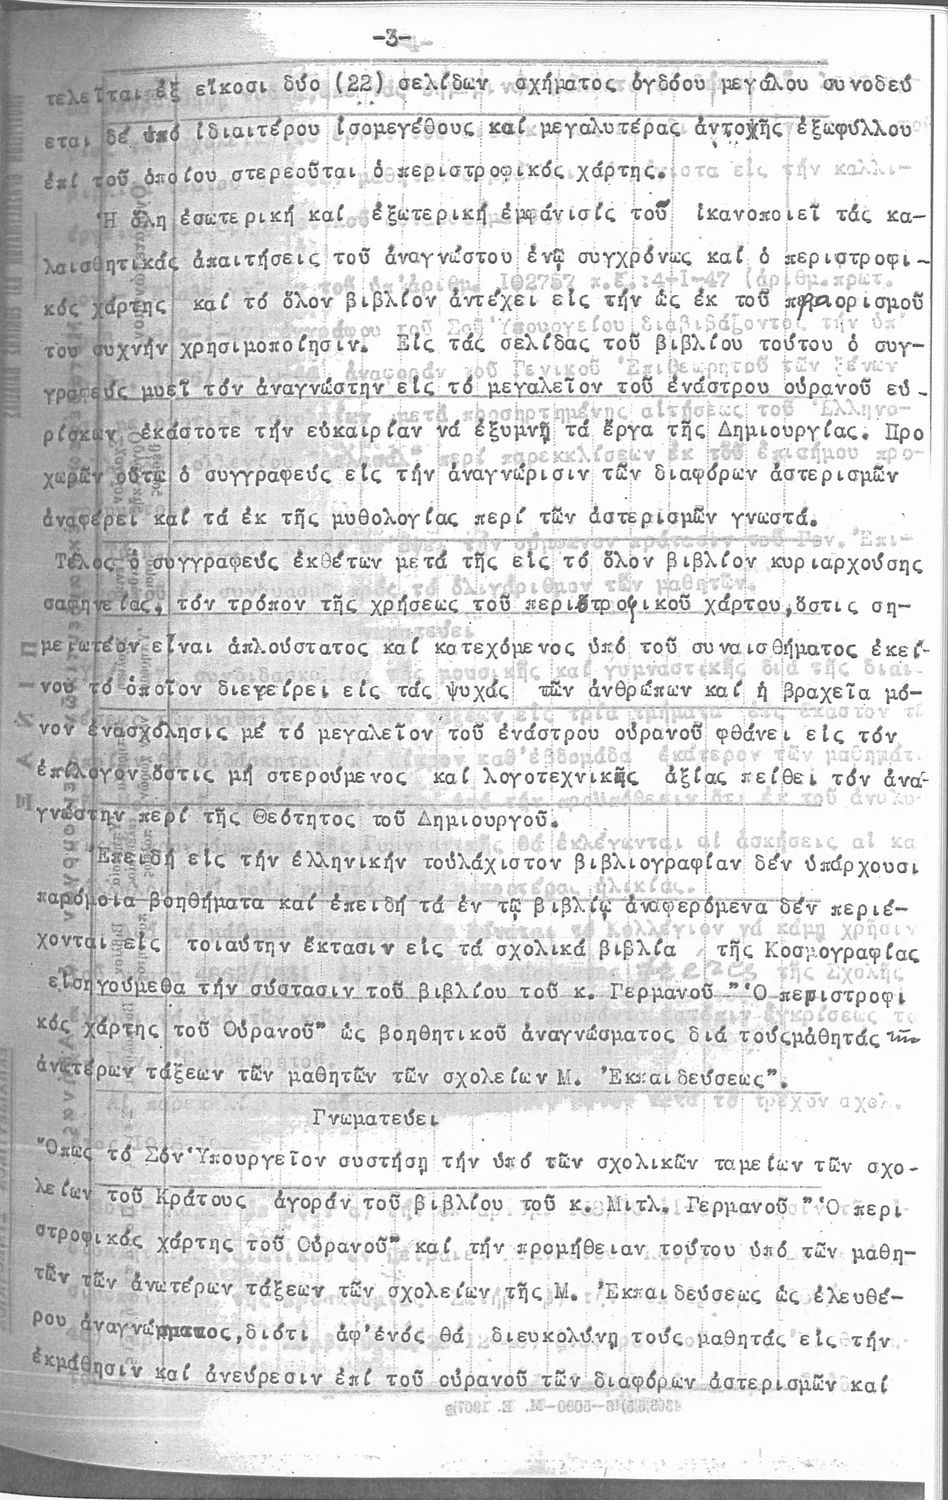 -3-
τελεῖται ἐξ εἴκοσι δύο (22) σελίδων σχήματος ὀγδόου μεγάλου συνοδεύ
εται δέ ὑπό ἰδιαιτέρου ἰσομεγέθους καί μεγαλυτέρας ἀντοχῆς ἐξωφύλλου
ἐπί τοῦ ὁποίου στερεοῦται ὁ περιστροφικός χάρτης.
Ἡ ὅλη ἐσωτερική καί ἐξωτερική ἐμφάνισίς τοῦ ἱκανοποιεῖ τάς κα-
λαισθητικάς ἀπαιτήσεις τοῦ ἀναγνώστου ἐνῷ συγχρόνως καί ὁ περιστροφι-
κός χάρτης καί τό ὅλον βιβλίον ἀντέχει εἰς τήν ὡς ἐκ τοῦ προορισμοῦ
του συχνήν χρησιμοποίησιν. Εἰς τάς σελίδας τοῦ βιβλίου τούτου ὁ συγ-
γραφεύς μυεῖ τόν ἀναγνώστην εἰς τό μεγαλεῖον τοῦ ἐνάστρου οὐρανοῦ εὑ-
ρίσκων ἑκάστοτε τήν εὐκαιρίαν νά ἐξυμνῇ τά ἔργα τῆς Δημιουργίας. Προ
χωρῶν οὕτω ὁ συγγραφεύς εἰς τήν ἀναγνώρισιν τῶν διαφόρων ἀστερισμῶν
ἀναφέρει καί τά ἐκ τῆς μυθολογίας περί τῶν ἀστερισμῶν γνωστά.
Τέλος ὁ συγγραφεύς ἐκθέτων μετά τῆς εἰς τό ὅλον βιβλίον κυριαρχούσης
σαφηνείας, τόν τρόπον τῆς χρήσεως τοῦ περιστροφικοῦ χάρτου, ὅστις ση-
μειωτέον εἶναι ἁπλούστατος καί κατεχόμενος ὑπό τοῦ συναισθήματος ἐκεί-
νου τό ὁποῖον διεγείρει εἰς τάς ψυχάς τῶν ἀνθρώπων καί ἡ βραχεῖα μό-
νον ἐνασχόλησις μέ τό μεγαλεῖον τοῦ ἐνάστρου οὐρανοῦ φθάνει εἰς τόν
ἐπίλογον ὅστις μή στερούμενος καί λογοτεχνικῆς ἀξίας πείθει τόν ἀνα-
γνώστην περί τῆς Θεότητος τοῦ Δημιουργοῦ.
Ἐπειδή εἰς τήν ἑλληνικήν τοὐλάχιστον βιβλιογραφίαν δέν ὑπάρχουσι
παρόμοια βοηθήματα καί ἐπειδή τά ἐν τῷ βιβλίῳ ἀναφερόμενα δέν περιέ-
χονται εἰς τοιαύτην ἔκτασιν εἰς τά σχολικά βιβλία τῆς Κοσμογραφίας
εἰσηγούμεθα τήν σύστασιν τοῦ βιβλίου τοῦ κ. Γερμανοῦ "Ὁ περιστροφι
κός χάρτης τοῦ Οὐρανοῦ" ὡς βοηθητικοῦ ἀναγνώσματος διά τούςμαθητάς τῶν
ἀνωτέρων τάξεων τῶν μαθητῶν τῶν σχολείων Μ. Ἐκπαιδεύσεως".
Γνωματεύει
Ὅπως τό Σόν Ὑπουργεῖον συστήσῃ τήν ὑπό τῶν σχολικῶν ταμείων τῶν σχο-
λείων τοῦ Κράτους ἀγοράν τοῦ βιβλίου τοῦ κ. Μιτλ. Γερμανοῦ "Ὁ περι
στροφικός χάρτης τοῦ Οὐρανοῦ" καί τήν προμήθειαν τούτου ὑπό τῶν μαθη-
τῶν τῶν ἀνωτέρων τάξεων τῶν σχολείων τῆς Μ. Ἐκπαιδεύσεως ὡς ἐλευθέ-
ρου ἀναγνώσματος, διότι ἀφ'ἑνός θά διευκολύνῃ τούς μαθητάς εἰς τήν
ἐκμάθησιν καί ἀνεύρεσιν ἐπί τοῦ οὐρανοῦ τῶν διαφόρων ἀστερισμῶν καί